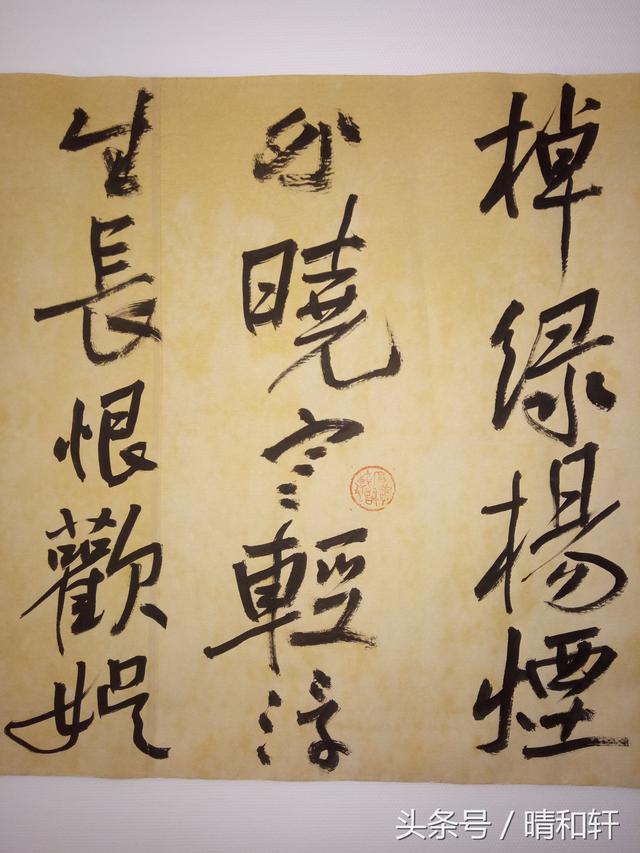 棹绿楊煙
外曉寒輕浮
生長恨歡娱
头条号 / 晴和轩